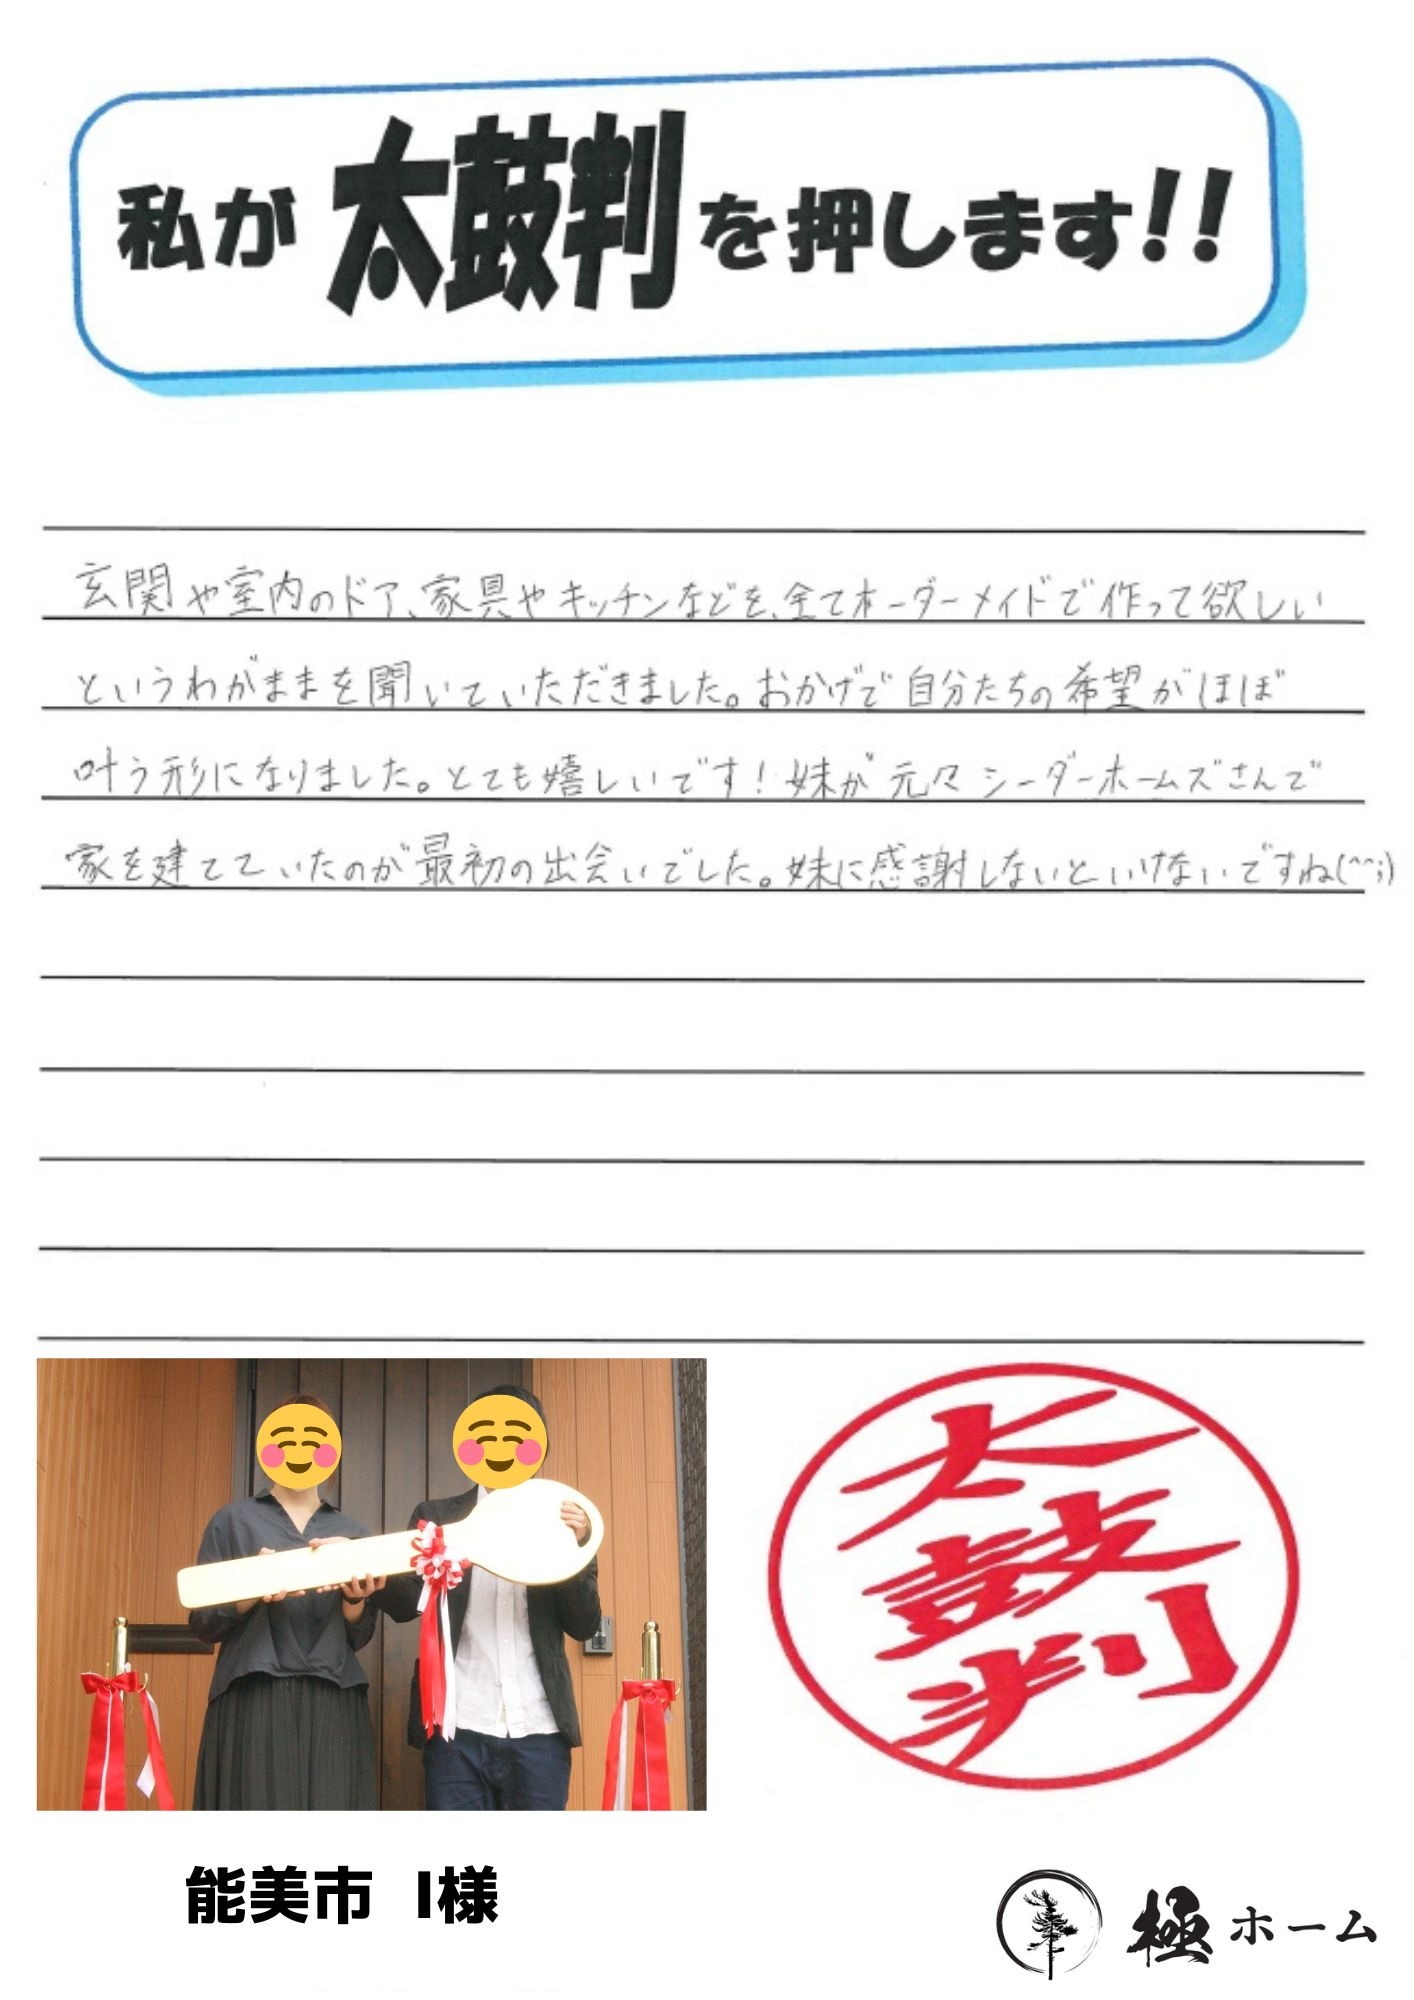 私が太鼓判を押します!!
玄関や室内のドア、家具やキッチンなどを、全てオーダーメイドで作って欲しい
というわがままを聞いていただきました。おかげで自分たちの希望がほぼ
叶う形になりました。とても嬉しいです!妹が元々シーダーホームズさんで
家を建てていたのが最初の出会いでした。妹に感謝しないといけないですね(^^;)
太鼓判
能美市 I様
極ホーム